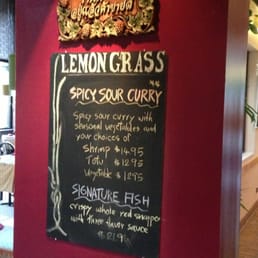 LEMONGRASS
SPICY SOUR CURRY
Spicy sour curry with
seasonal vegetables and
your choices of
Shrimp $14.95
Tofu $12.95
Vegetable $12.95
SIGNATURE FISH
crispy whole red snapper
with three flavor sauce
$21.95